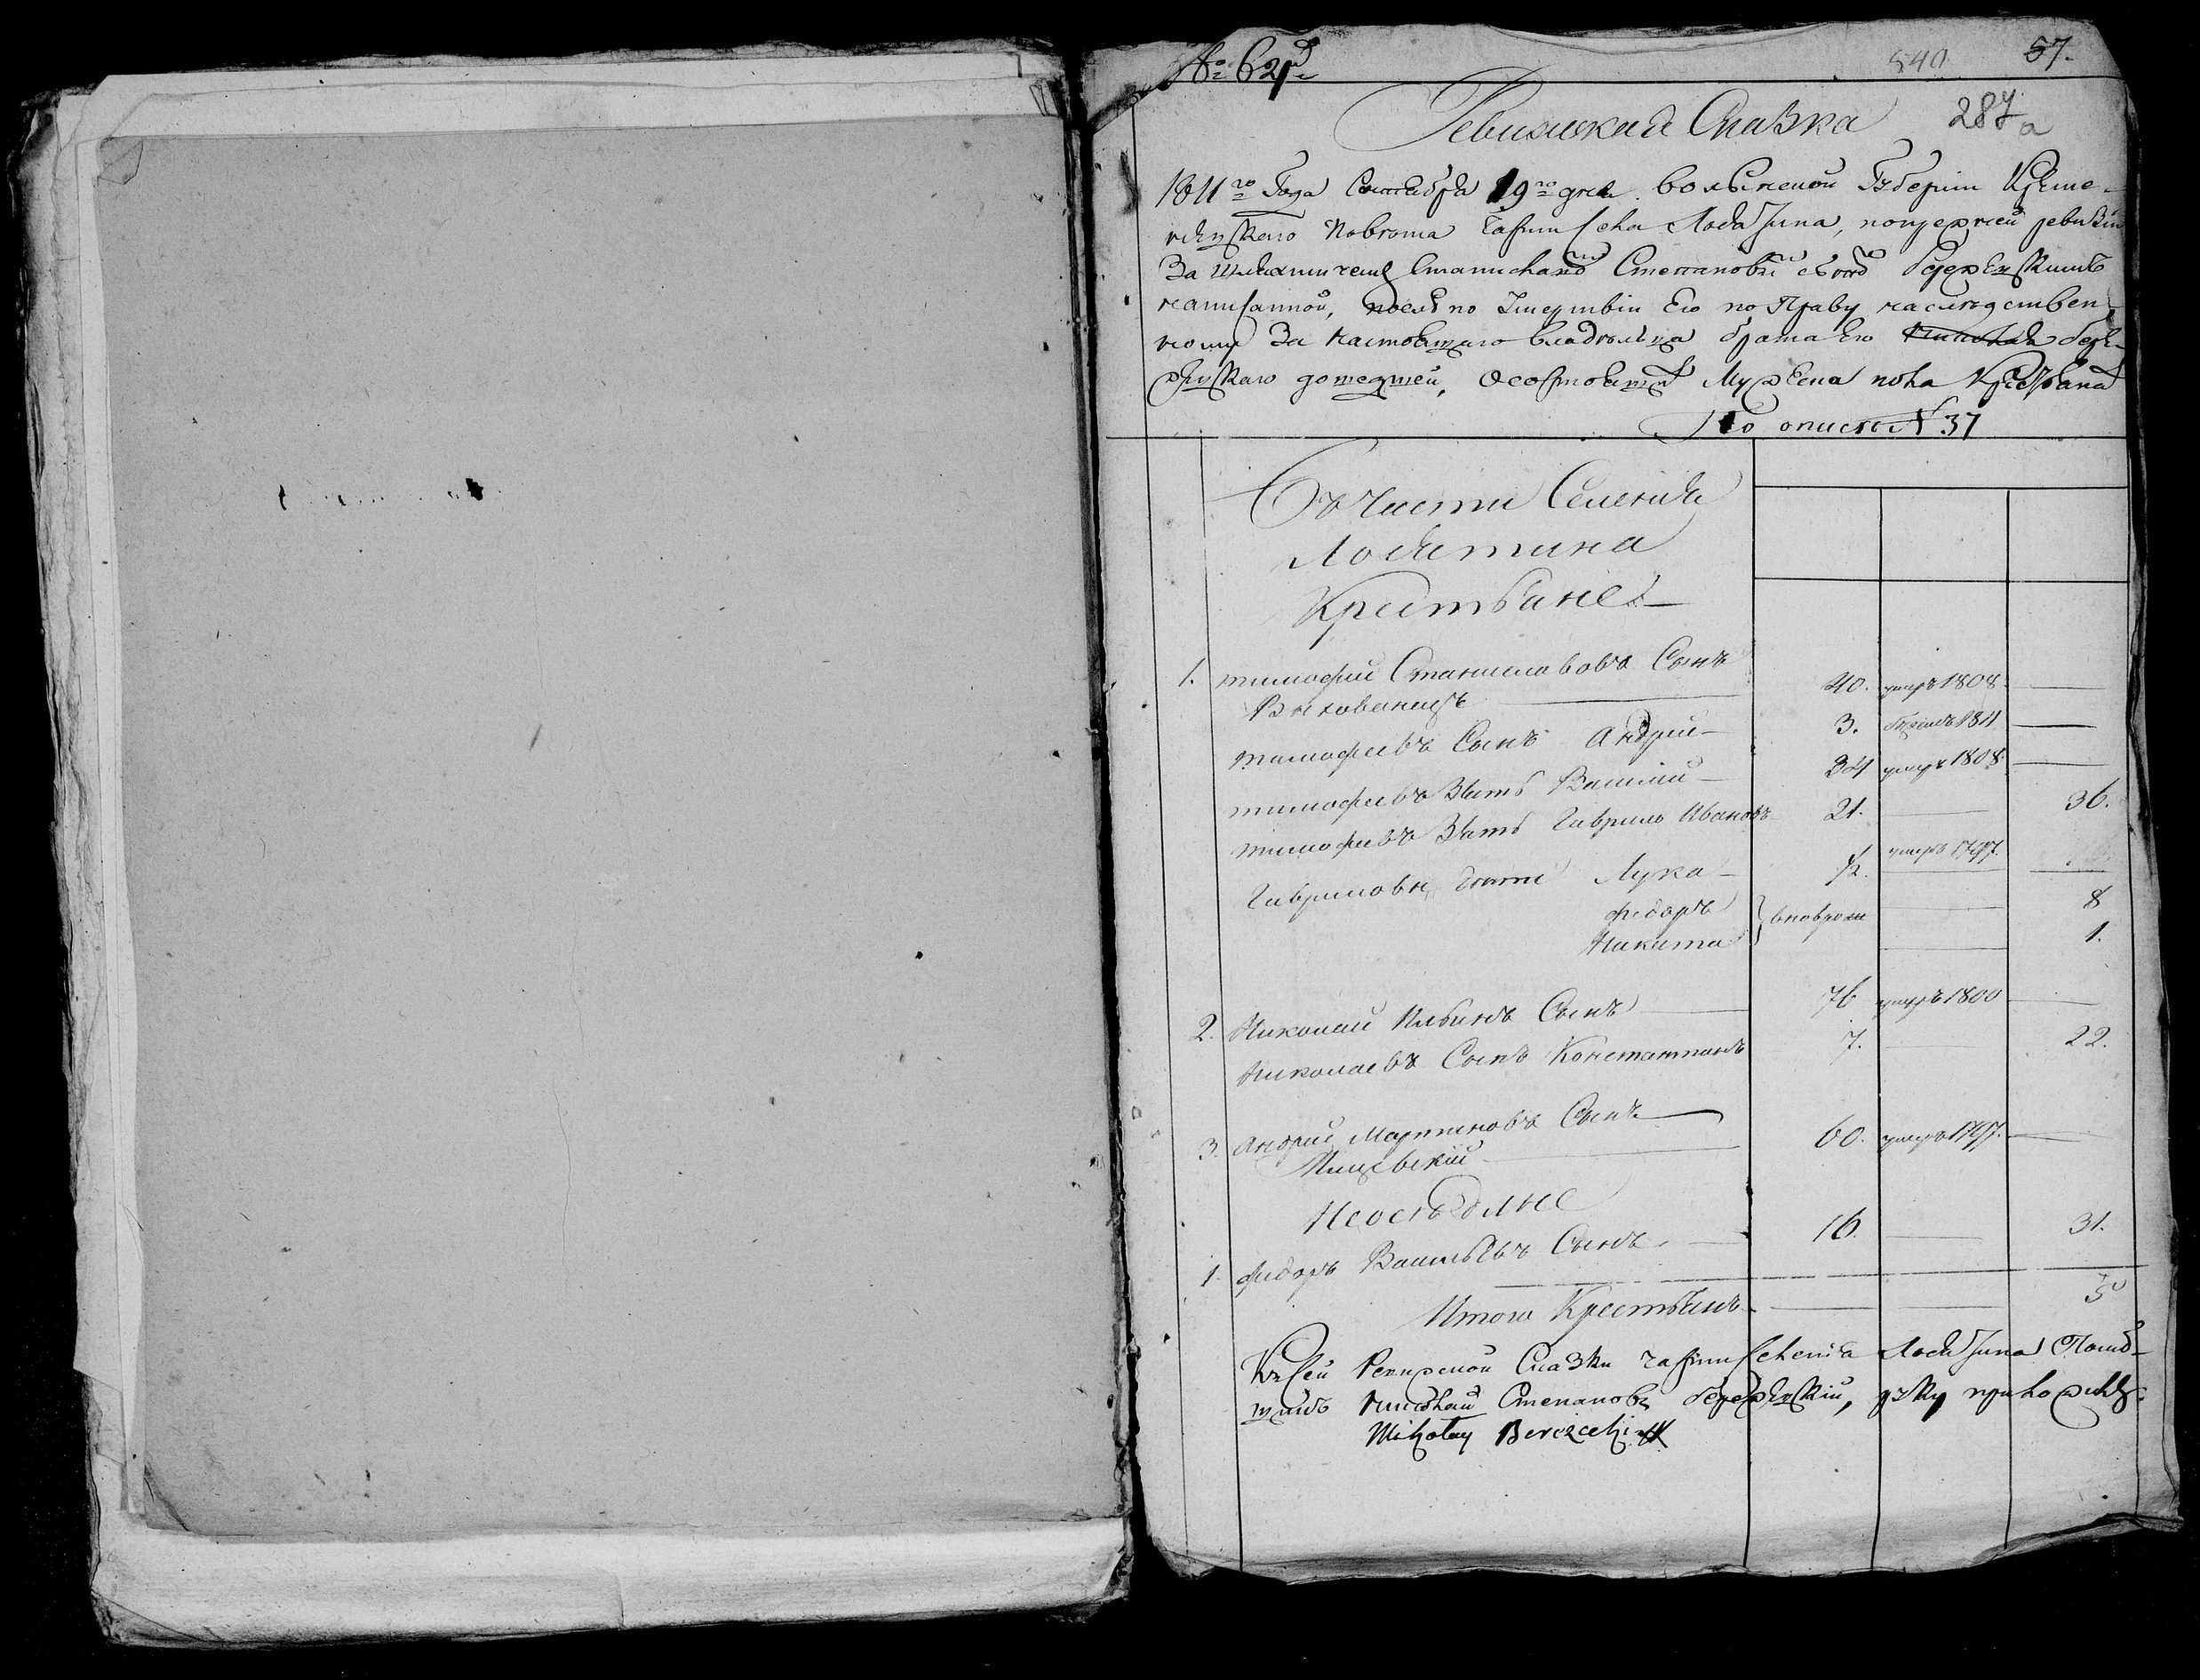 № 62й
540 57.
Ревизская Сказка 287 а
1811го Года Сентября 19го дня Волынской Губерніи Креме-
нецкаго Повѣта части села Лосятина, попрежней ревизіи
За шляхтичемъ Станиславомъ Степановымъ сыномъ Бережецкимъ
написанной, послѣ по Умертвіи Его по Праву наследствен-
ному За настоящаго владѣльца брата Его Николая Бере-
жецкаго дошедшей, О состоящихъ Мужеска пола Крестьянахъ
По описи № 37
Въ Части Селенія
Лосятина
Крестьяне
1. тимофей Станиславовъ Сынъ
Вихованецъ 40. умеръ 1808
тимофеевъ Сынъ Андрей 3. 1811
тимофеевъ Зять Василій 34 умеръ 1808
тимофеевъ Зять Гаврило Ивановъ 21. 36.
Гавриловы дѣти Лука ½. умеръ 1797.
федоръ } вновь рож 8
Никита 1.
2. Николай Ильинъ Сынъ 76 умеръ 1800
Николаевъ Сынъ Константинъ 7. 22.
3. Андрей Мартиновъ Сынъ
60. умеръ 1797.
Неоседлые
1. федоръ Васильевъ Сынъ 16. 31.
Итого Крестьянъ 5
Къ сей Ревизской Сказки части селенія Лосятина Помѣ-
щикъ Николай Степановъ Бережецкій, руку приложилъ.
Mikołay Bereżecki